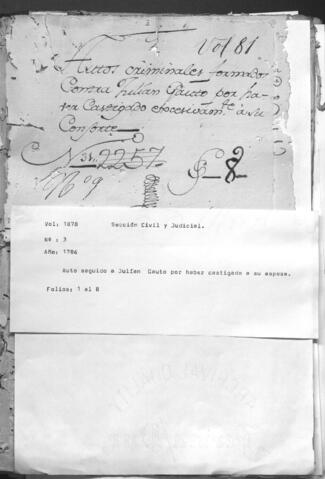 Vol 81
Autos criminales formados
Contra Julian Gauto por ha-
ver Castigado excecivam.te a su
Consorte
N 34,2257
No 9
8
Vol: 1878 Sección Civil y Judicial.
Nº : 3
Año: 1786
Auto seguido a Julian Gauto por haber castigado a su esposa.
Folios: 1 al 8